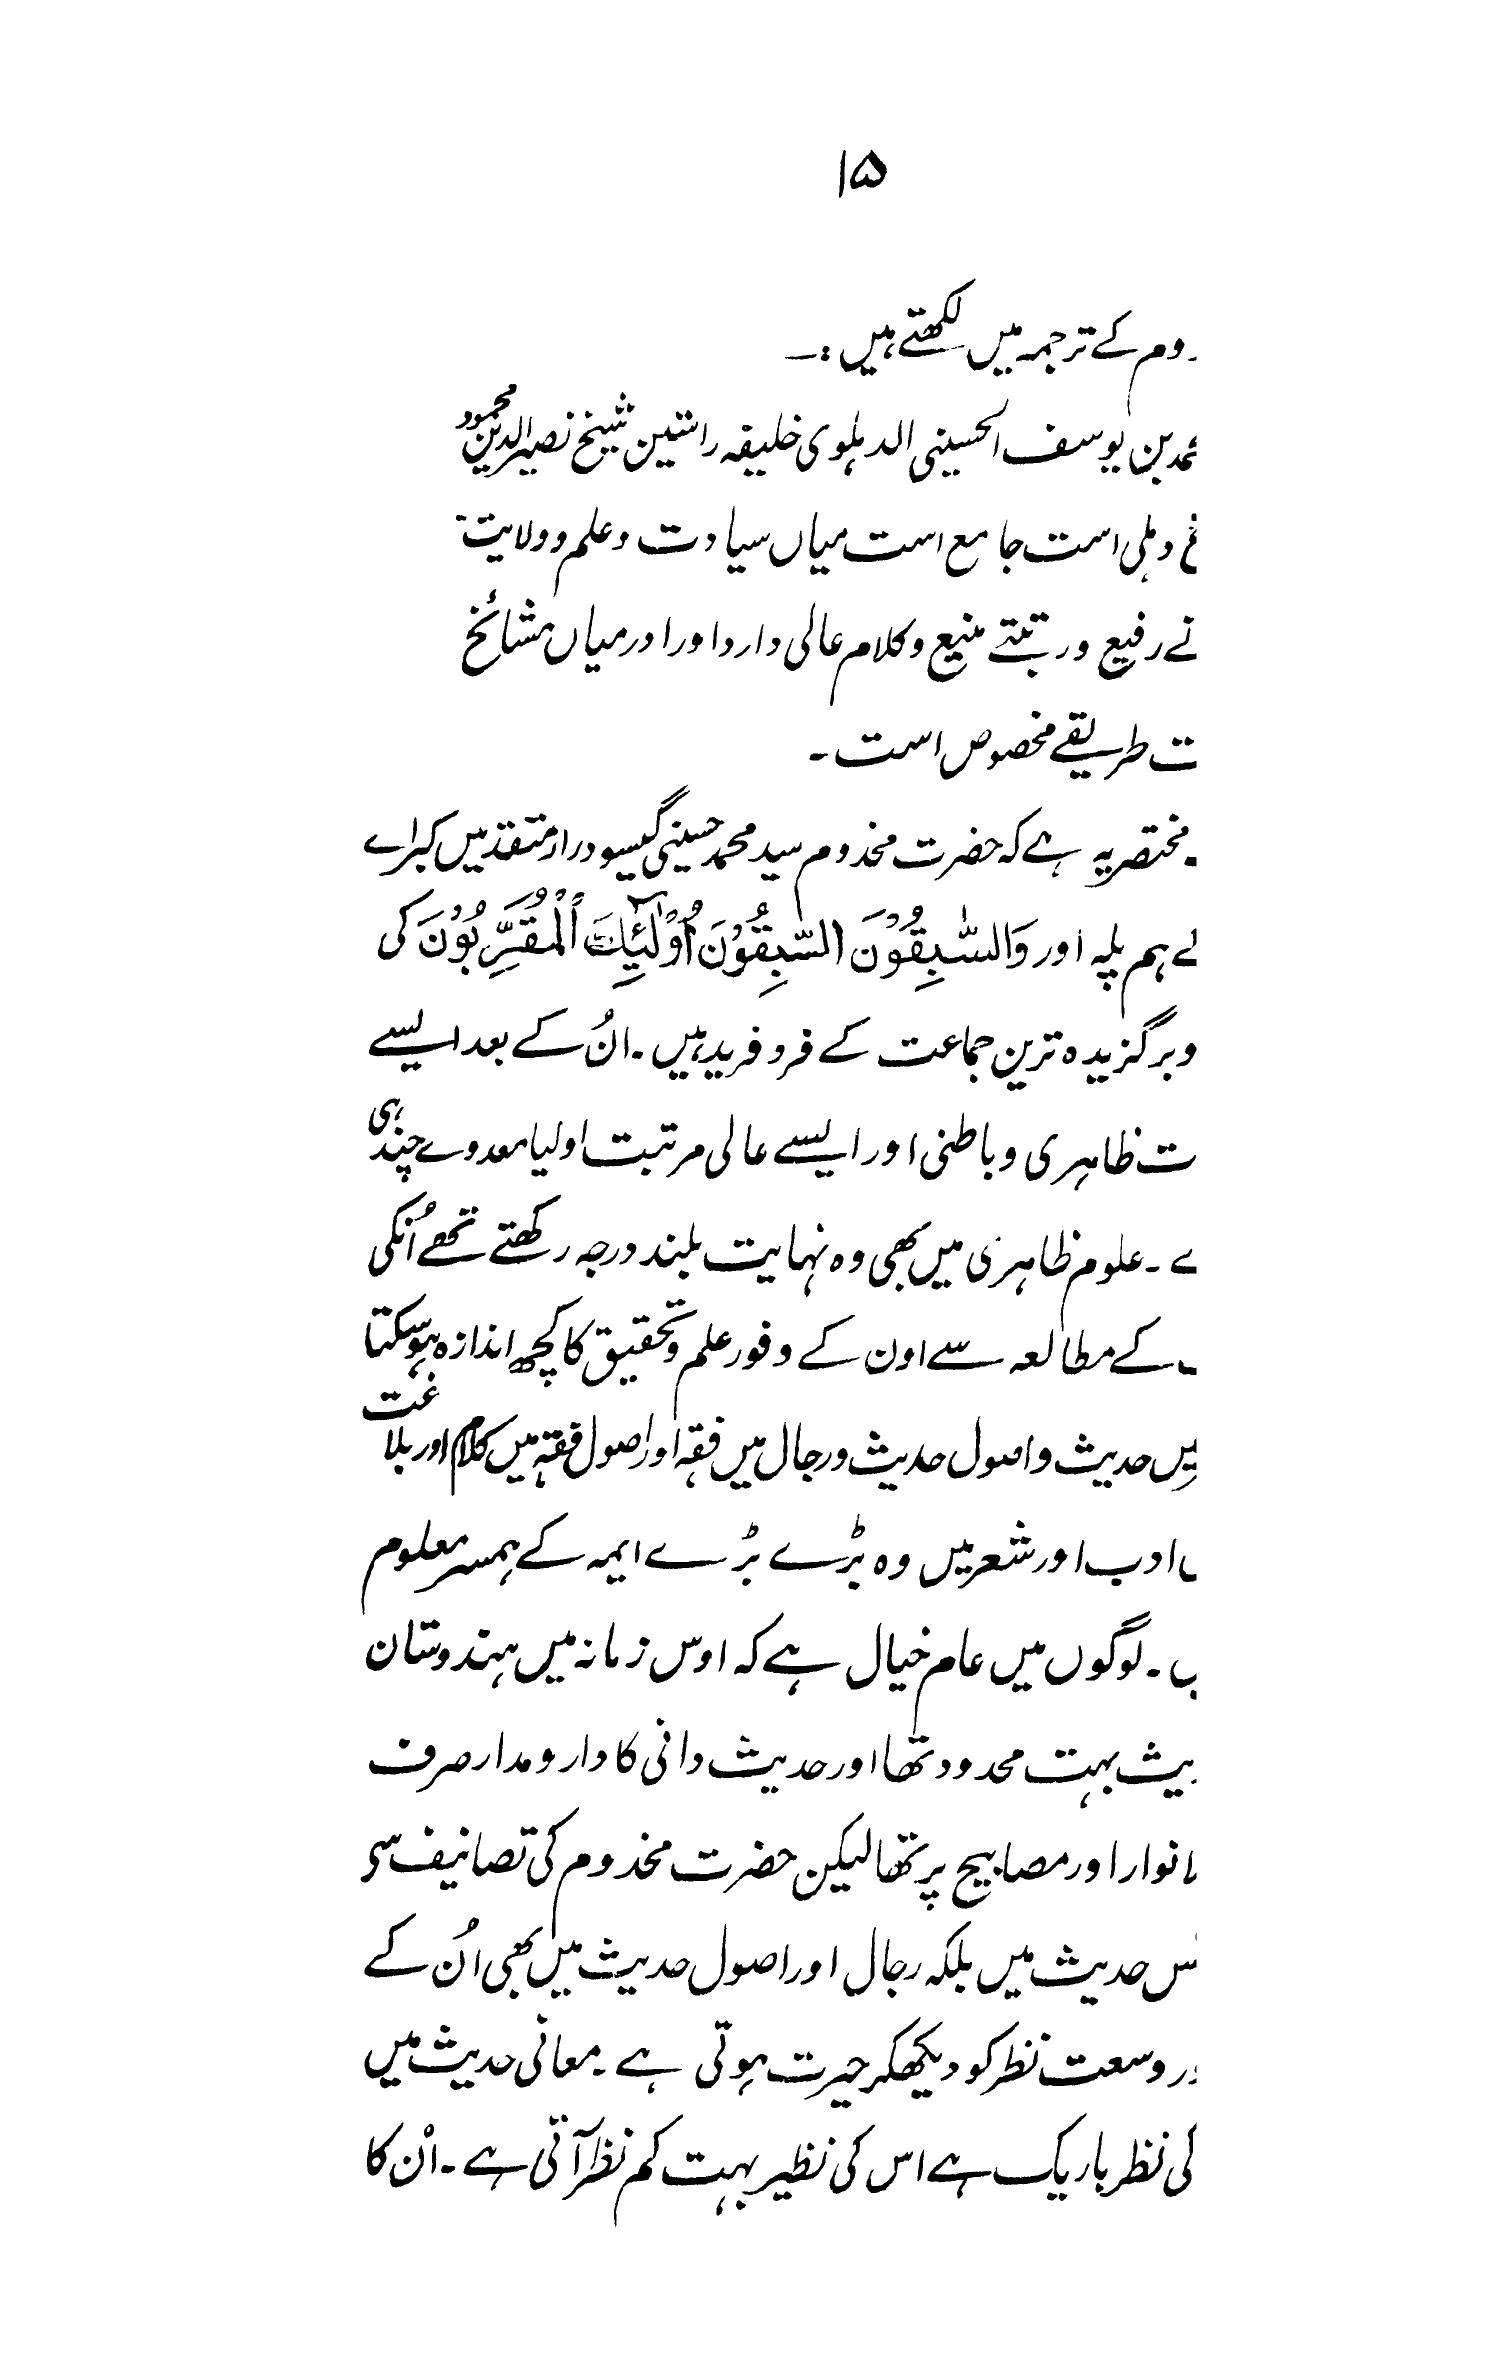 ۱۵
روم کے ترجمہ میں لکھتے ہیں :۔
بن یوسف الحسینی الدہلوی خلیفہ راستین شیخ نصیرالدین محمود
غ دہلی است جامع است میاں سیادت و علم و ولایت
نے رفیع ورتبتے منیع و کلام عالی دارد اورا درمیاں مشائخ
ت طریقے مخصوص است ۔
۔ مختصر یہ ہے کہ حضرت مخدوم سید محمد حسینی گیسو دراز متقدمیں کبراے
ے ہم پلہ اور وَالسّٰبِقُوْنَ السّٰبِقُوْنَ اُوْلٰٓئِكَ الْمُقَرَّبُوْنَ کی
و برگزیدہ ترین جماعت کے فرد فرید ہیں ۔ اُن کے بعد ایسے
ت ظاہری و باطنی اور ایسے عالی مرتبت اولیا معدودے چند ہی
ے ۔ علوم ظاہری میں بھی وہ نہایت بلند درجہ رکھتے تھے اُنکی
کے مطالعہ سے اون کے وفور علم و تحقیق کا کچھ اندازہ ہوسکتا
میں حدیث و اصول حدیث و رجال میں فقہ اور اصول فقہ میں کلام اور بلاغت
ادب اور شعر میں وہ بڑے بڑے ایمہ کے ہمسر معلوم
۔ لوگوں میں عام خیال ہے کہ اوس زمانہ میں ہندوستان
یث بہت محدود تھا اور حدیث دانی کا دار و مدار صرف
انوار اور مصابیح پر تھا لیکن حضرت مخدوم کی تصانیف سے
س حدیث میں بلکہ رجال اور اصول حدیث میں بھی اُن کے
ور وسعت نظر کو دیکھکر حیرت ہوتی ہے ۔ معانی حدیث میں
کی نظر باریک ہے اس کی نظیر بہت کم نظر آتی ہے ۔ اُن کا